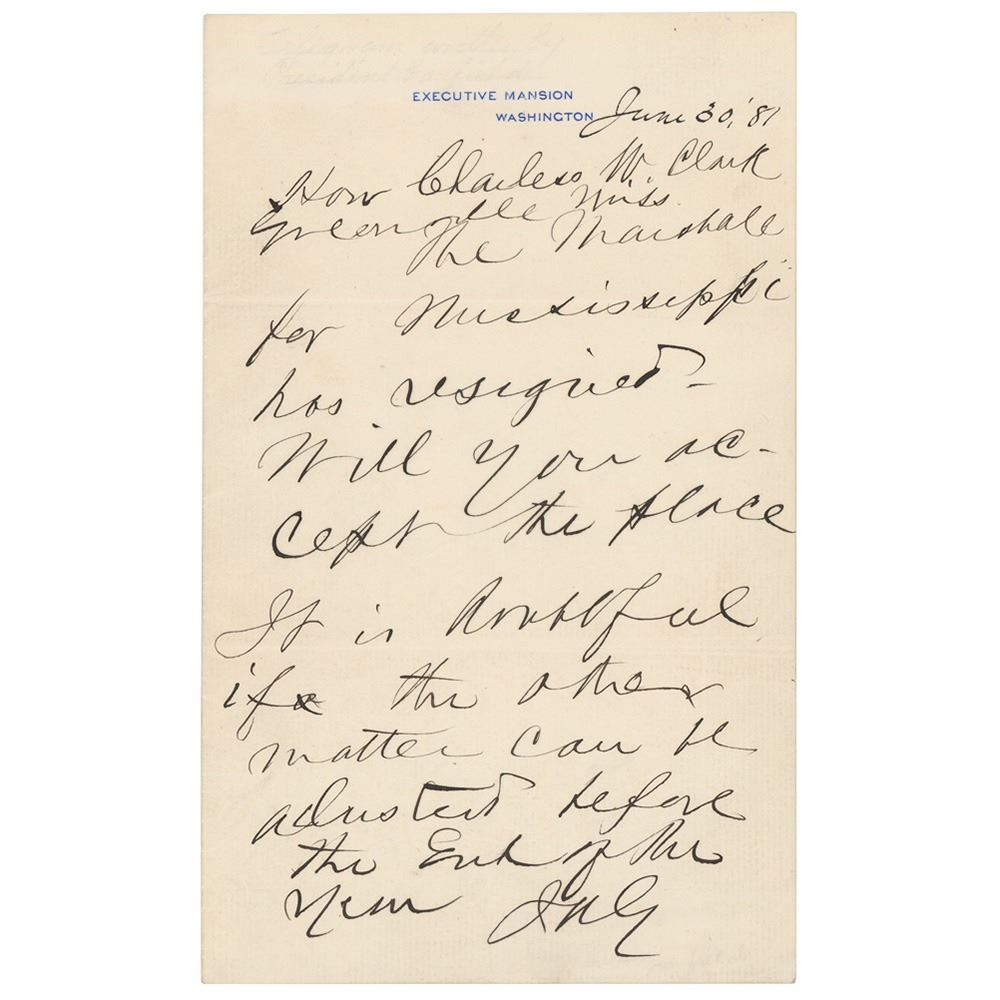 EXECUTIVE MANSION
WASHINGTON
June 30, '81
Hon Charles W. Clark
Greenville Miss.
The Marshale
for Mississippi
has resigned -
Will you ac-
cept the place
It is doubtful
if the other
matter can be
adjusted before
the End of the
Year JAG